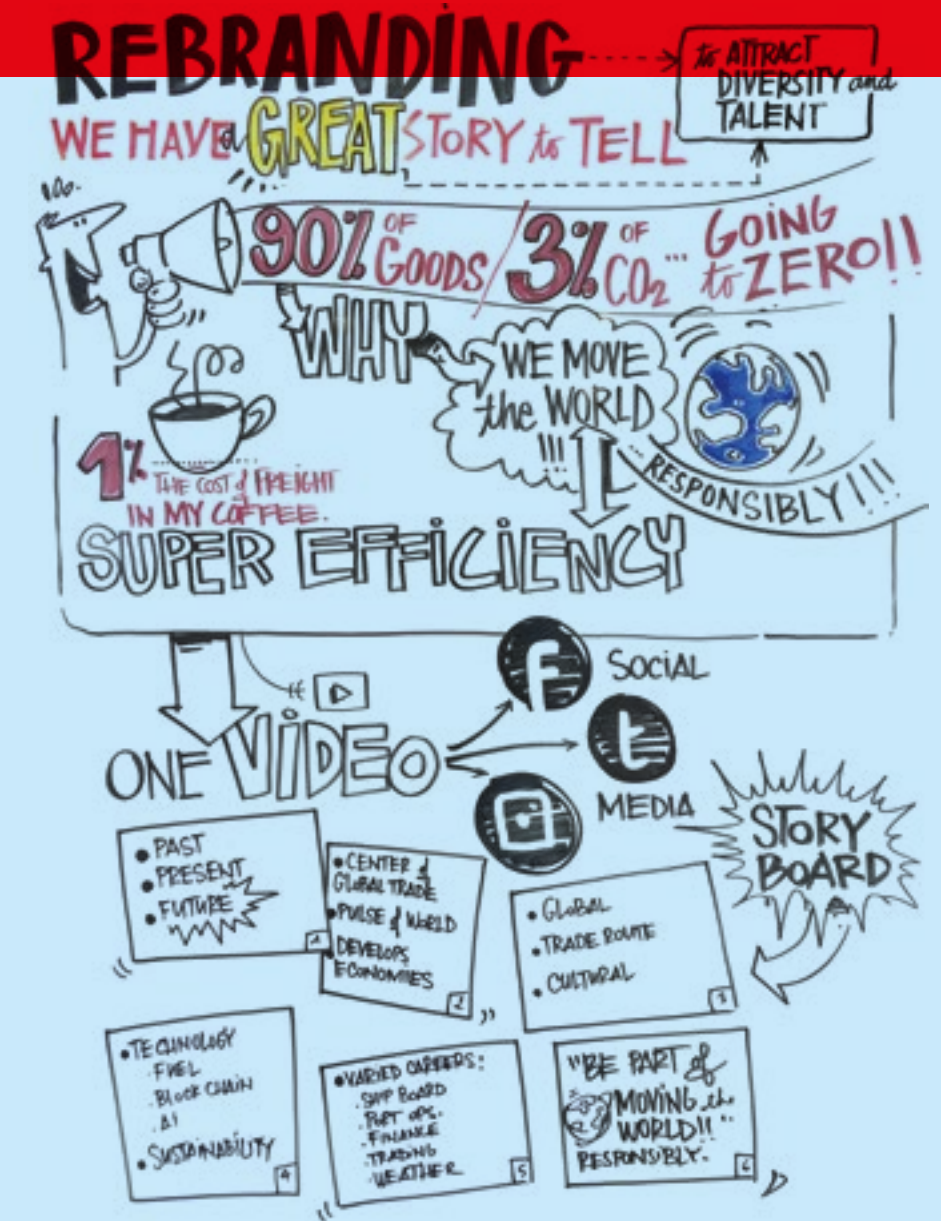 REBRANDING
to ATTRACT
DIVERSITY and
TALENT
WE HAVE a GREAT STORY to TELL
90% OF GOODS / 3% OF CO2... GOING to ZERO!!
WHY
WE MOVE
the WORLD
!!!
... RESPONSIBLY!!!
1% THE COST of FREIGHT
IN MY COFFEE.
SUPER EFFICIENCY
SOCIAL
ONE VIDEO
MEDIA
STORY
BOARD
• PAST
• PRESENT
• FUTURE
1
• CENTER of
GLOBAL TRADE
• PULSE of WORLD
• DEVELOPS
ECONOMIES
2
• GLOBAL
• TRADE ROUTE
• CULTURAL
3
• TECHNOLOGY
. FUEL
. BLOCK CHAIN
. AI
• SUSTAINABILITY
4
• VARIED CAREERS:
. SHIP BOARD
. PORT OPS.
. FINANCE
. TRADING
. WEATHER
5
"BE PART of
MOVING the
WORLD!!"
RESPONSIBLY.
6